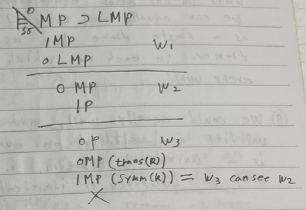 0 MP ⊃ LMP
S5
1MP
0 LMP W₁
0 MP W₂
1P
0P W₃
0MP (trans(R))
1MP (symm(R)) = W₃ can see W₂
X